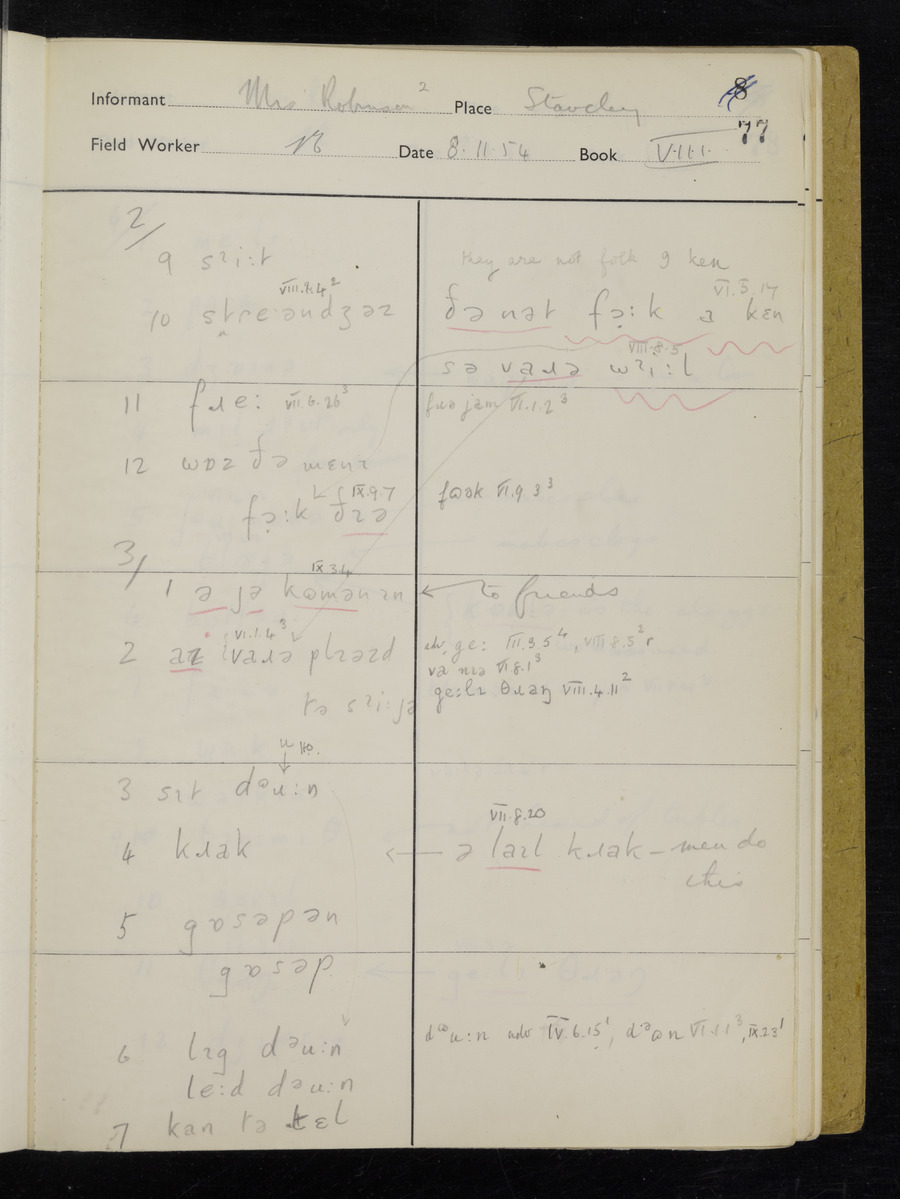 8
Informant Mrs Robinson 2 Place Staveley
77
Field Worker Date 8.11.54 Book VIII.
2/
9 sɪi:t
they are not folk I ken
VIII.2.4 2
VI.5.17
10 stɾeəndʒəz
ðə nət fə̣:k a kɛn
VIII.8.5
sə vaɹə wɪi:l
11 fɹe: VII.6.26 3
fɹə jəm VI.1.2 3
12 wɒz ðə mɛnɪ
IX.9.7
fɔək VI.9.3 3
fə̣:k ðɪə
3/
IX.3.4
1 ə jə kəmən ɪn ← to friends
VI.1.4 3
2 aɪ vaɹə plɪəzd
adv. ge: VII.3.5 4, VIII.8.5 2 r
va nɪə VI.8.1 3
ge:lɪ θɹaŋ VIII.4.11 2
tə sɪi:jə
3 sɪt dəu:n
VII.8.20
4 kɹak
← ə laɪl kɹak – men do
this
5 gɒsəpən
gɒsəp
6 lɪg dəu:n
dəu:n adv IV.6.15 1, dəən VI.1.1 3, IX.2.3 1
le:d dəu:n
7 kan tə tɛl